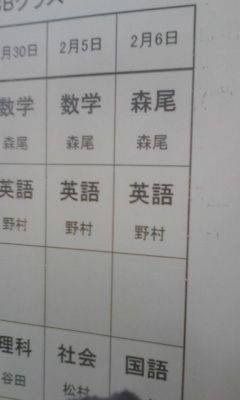 Bクラス
月30日 2月5日 2月6日
数学 数学 森尾
森尾 森尾 森尾
英語 英語 英語
野村 野村 野村
理科 社会 国語
谷田 松村